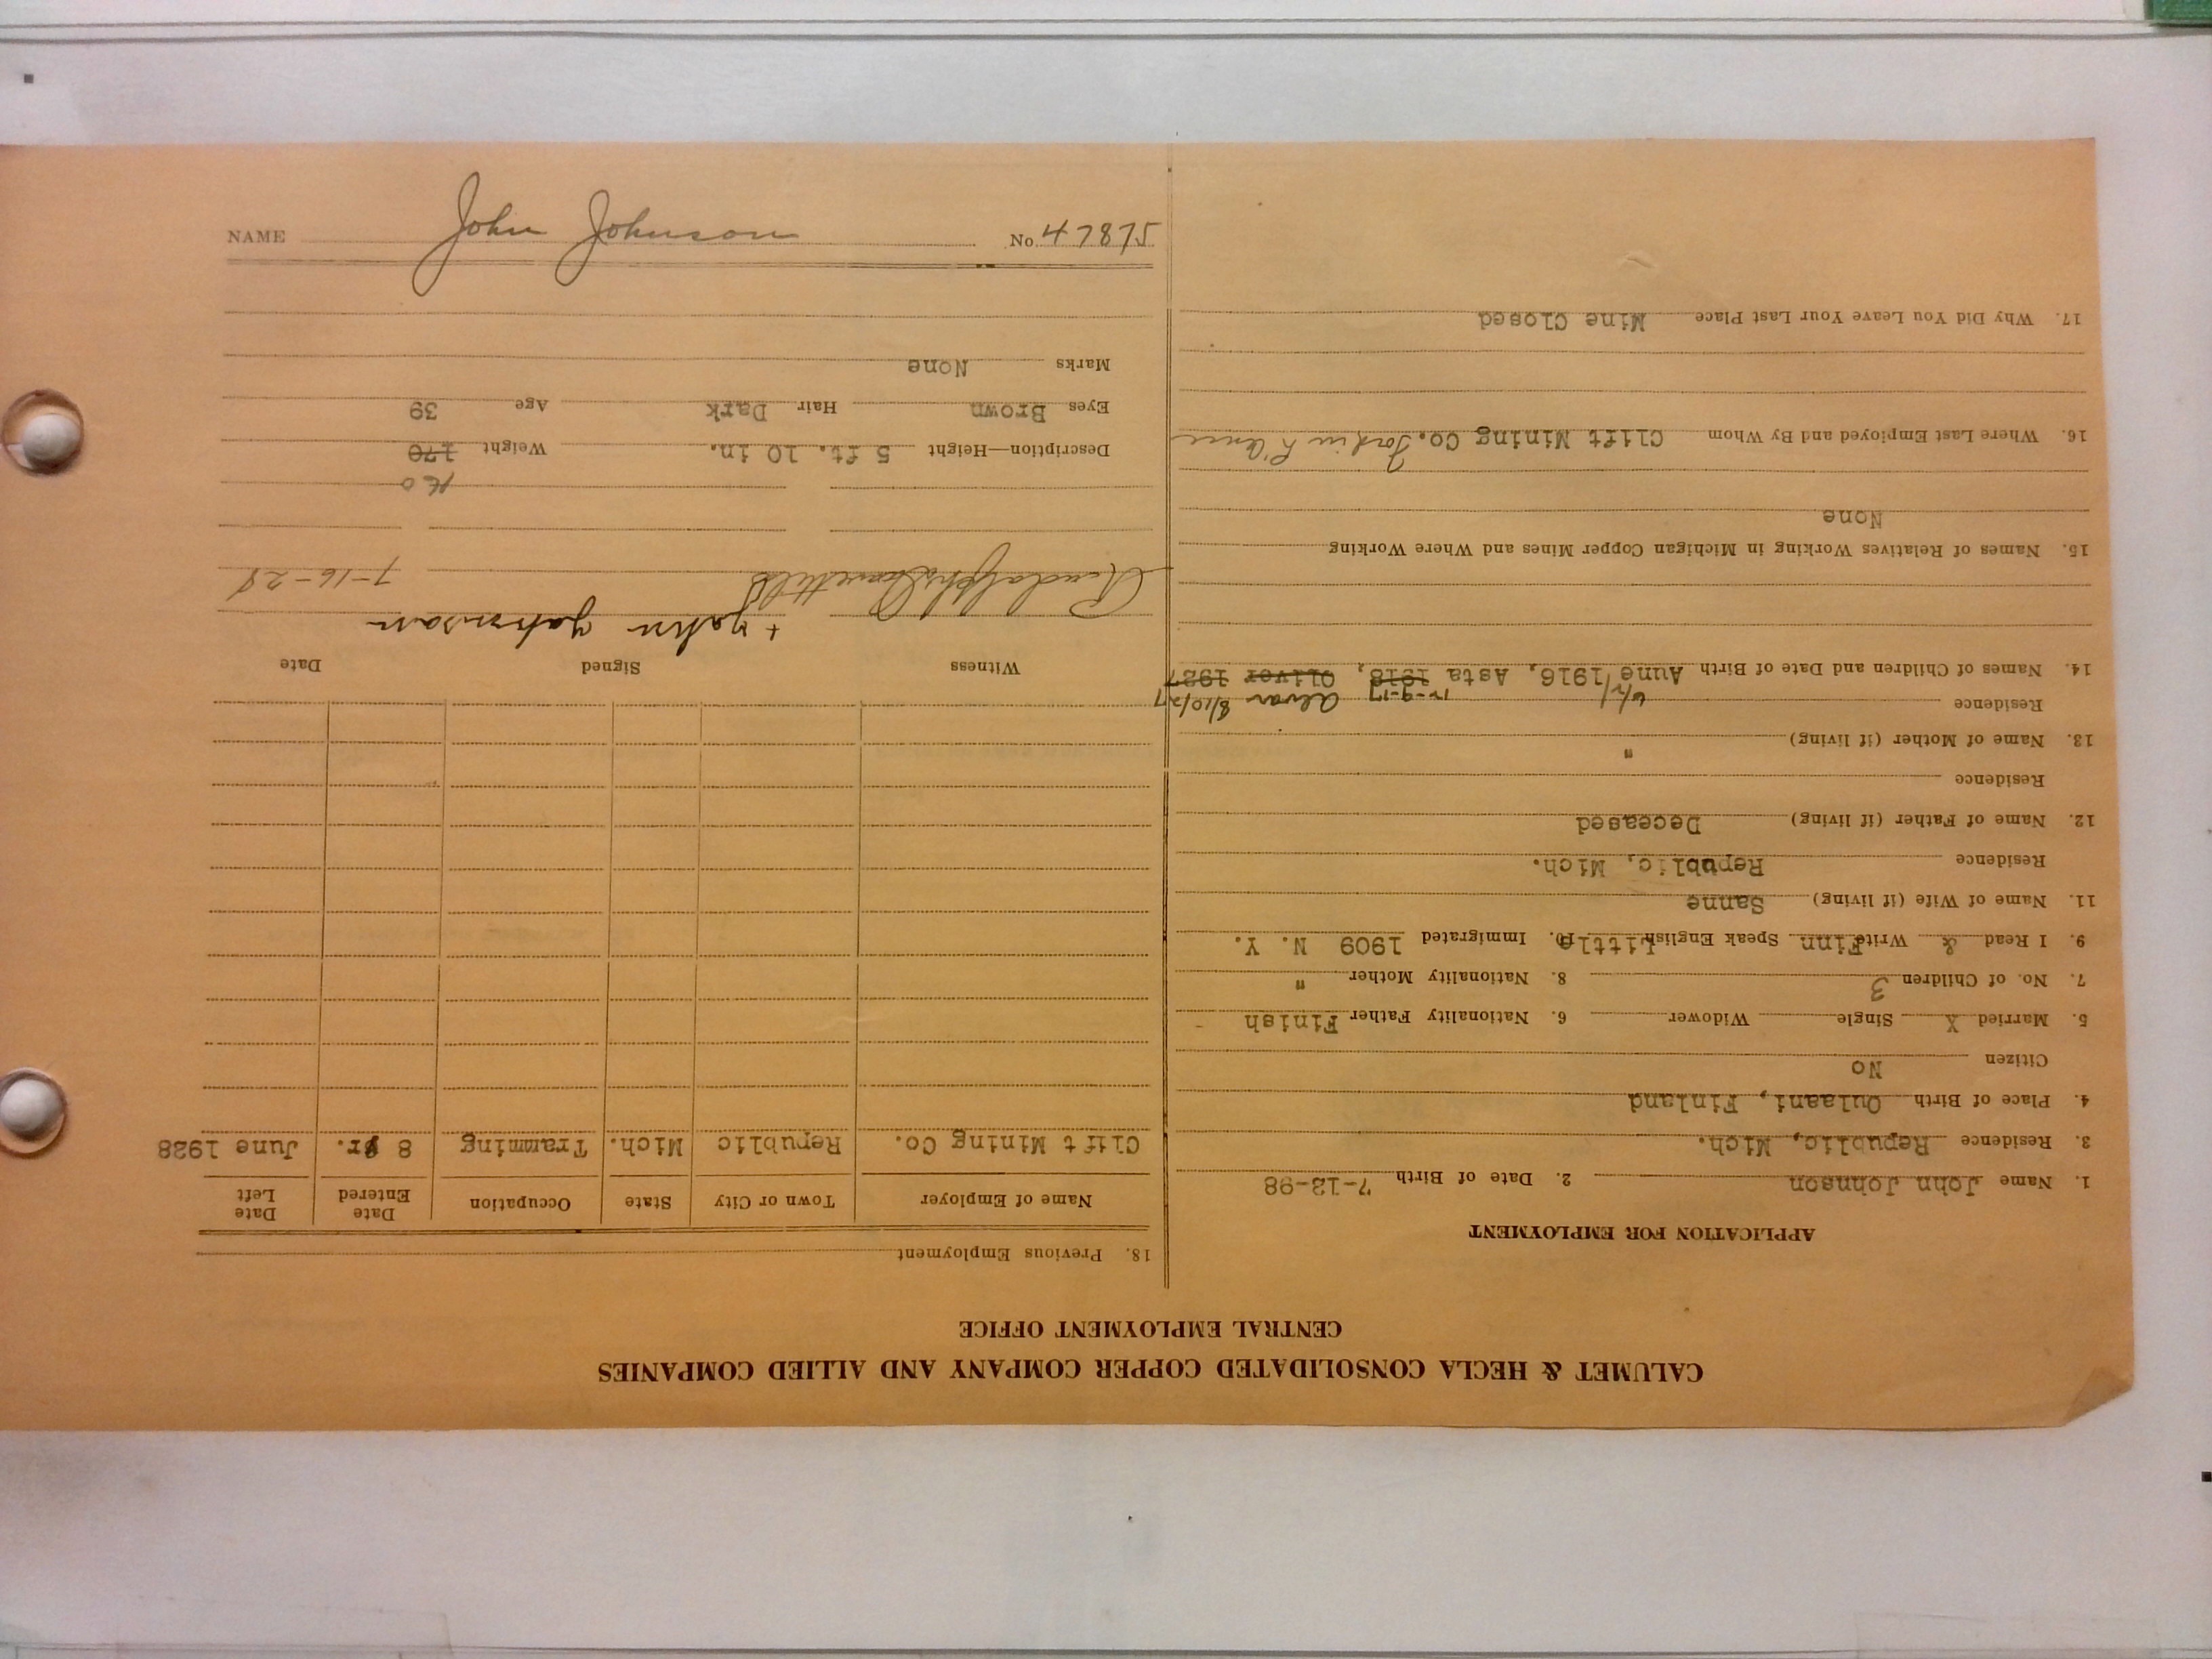 CALUMET & HECLA CONSOLIDATED COPPER COMPANY AND ALLIED COMPANIES
CENTRAL EMPLOYMENT OFFICE
APPLICATION FOR EMPLOYMENT
1. Name John Johnson 2. Date of Birth 7-12-98
3. Residence Republic, Mich.
4. Place of Birth Oulaani, Finland
Citizen No
5. Married X Single Widower 6. Nationality Father Finish
7. No. of Children 3 8. Nationality Mother "
9. I Read & Write Finn Speak English Little 10. Immigrated 1909 N. Y.
11. Name of Wife (if living) Sanne
Residence Republic, Mich.
12. Name of Father (if living) Deceased
Residence
13. Name of Mother (if living) "
Residence
6/7/ 12-9-17 Alvar 8/10/27
14. Names of Children and Date of Birth Aune 1916, Asta 1918, Oliver 1927
15. Names of Relatives Working in Michigan Copper Mines and Where Working
None
16. Where Last Employed and By Whom Clift Mining Co.
17. Why Did You Leave Your Last Place Mine Closed
18. Previous Employment
Name of Employer Town or City State Occupation Date Entered Date Left
Clift Mining Co. Republic Mich. Tramming 8 yr. June 1928
Witness Signed Date
+ John Johnson
7-16-28
160
Description—Height 5 ft. 10 in. Weight 170
Eyes Brown Hair Dark Age 39
Marks None
NAME John Johnson No. 47875